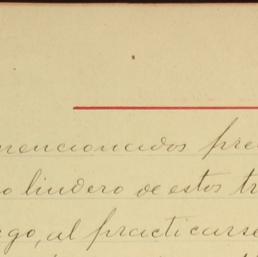 mencionados pre
o lindero de estos tr
go, al practicarse